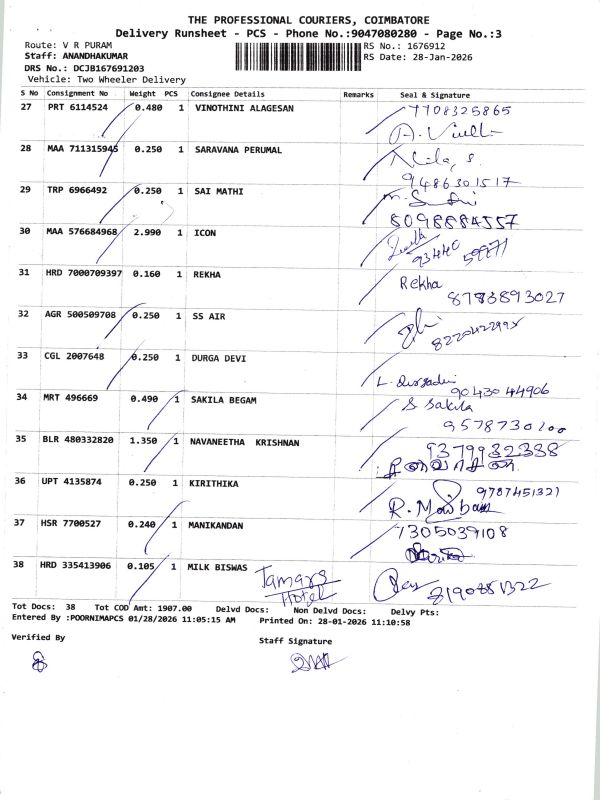 THE PROFESSIONAL COURIERS, COIMBATORE
Delivery Runsheet - PCS - Phone No.:9047080280 - Page No.:3
Route: V R PURAM
Staff: ANANDHAKUMAR
DRS No.: DCJB167691203
Vehicle: Two Wheeler Delivery
RS No.: 1676912
RS Date: 28-Jan-2026
S No Consignment No Weight PCS Consignee Details Remarks Seal & Signature
27 PRT 6114524 0.480 1 VINOTHINI ALAGESAN 7708325865
28 MAA 711315945 0.250 1 SARAVANA PERUMAL
9486301517
29 TRP 6966492 0.250 1 SAI MATHI
8098884557
30 MAA 576684968 2.990 1 ICON
93440 59971
31 HRD 7000709397 0.160 1 REKHA Rekha
8786893027
32 AGR 500509708 0.250 1 SS AIR
33 CGL 2007648 0.250 1 DURGA DEVI
L. Durgadevi
90430 44906
34 MRT 496669 0.490 1 SAKILA BEGAM S Sakila
9578730100
35 BLR 480332820 1.350 1 NAVANEETHA KRISHNAN 9379932338
36 UPT 4135874 0.250 1 KIRITHIKA 9787451321
37 HSR 7700527 0.240 1 MANIKANDAN 7305039108
38 HRD 335413906 0.105 1 MILK BISWAS Tamara
Hotel
Tot Docs: 38 Tot COD Amt: 1907.00 Delvd Docs: Non Delvd Docs: Delvy Pts:
Entered By :POORNIMAPCS 01/28/2026 11:05:15 AM Printed On: 28-01-2026 11:10:58
Verified By Staff Signature